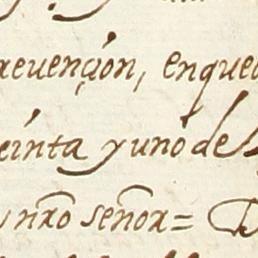 reuençion, enque
einta yuno de
nro señor=